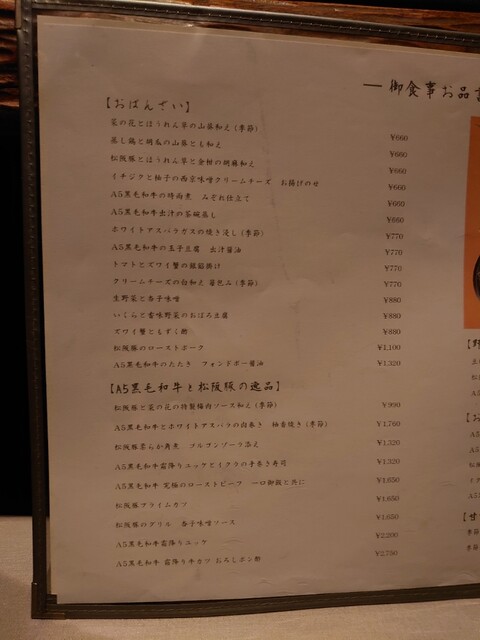 ― 御食事お品
【おばんざい】
菜の花とほうれん草の山葵和え (季節) ¥660
蒸し鶏と胡瓜の山葵とも和え ¥660
松阪豚とほうれん草と金柑の胡麻和え ¥660
イチジクと柚子の西京味噌クリームチーズ お揚げのせ ¥660
A5黒毛和牛の時雨煮 みぞれ仕立て ¥660
A5黒毛和牛出汁の茶碗蒸し ¥660
ホワイトアスパラガスの焼き浸し (季節) ¥770
A5黒毛和牛の玉子豆腐 出汁醤油 ¥770
トマトとズワイ蟹の銀餡掛け ¥770
クリームチーズの白和え 最包み (季節) ¥770
生野菜と杏子味噌 ¥880
いくらと香味野菜のおぼろ豆腐 ¥880
ズワイ蟹ともずく酢 ¥880
松阪豚のローストポーク ¥1,100
A5黒毛和牛のたたき フォンドボー醤油 ¥1,320
【A5黒毛和牛と松阪豚の逸品】
松阪豚と菜の花の特製梅肉ソース和え (季節) ¥990
A5黒毛和牛とホワイトアスパラの肉巻き 柚香焼き (季節) ¥1,760
松阪豚柔らか角煮 ブルゴンゾーラ添え ¥1,320
A5黒毛和牛霜降りユッケとイクラの手巻き寿司 ¥1,320
A5黒毛和牛 究極のローストビーフ 一口御飯と共に ¥1,650
松阪豚プライムカツ ¥1,650
松阪豚のグリル 杏子味噌ソース ¥1,650
A5黒毛和牛霜降りユッケ ¥2,200
A5黒毛和牛 霜降り牛カツ おろしポン酢 ¥2,750